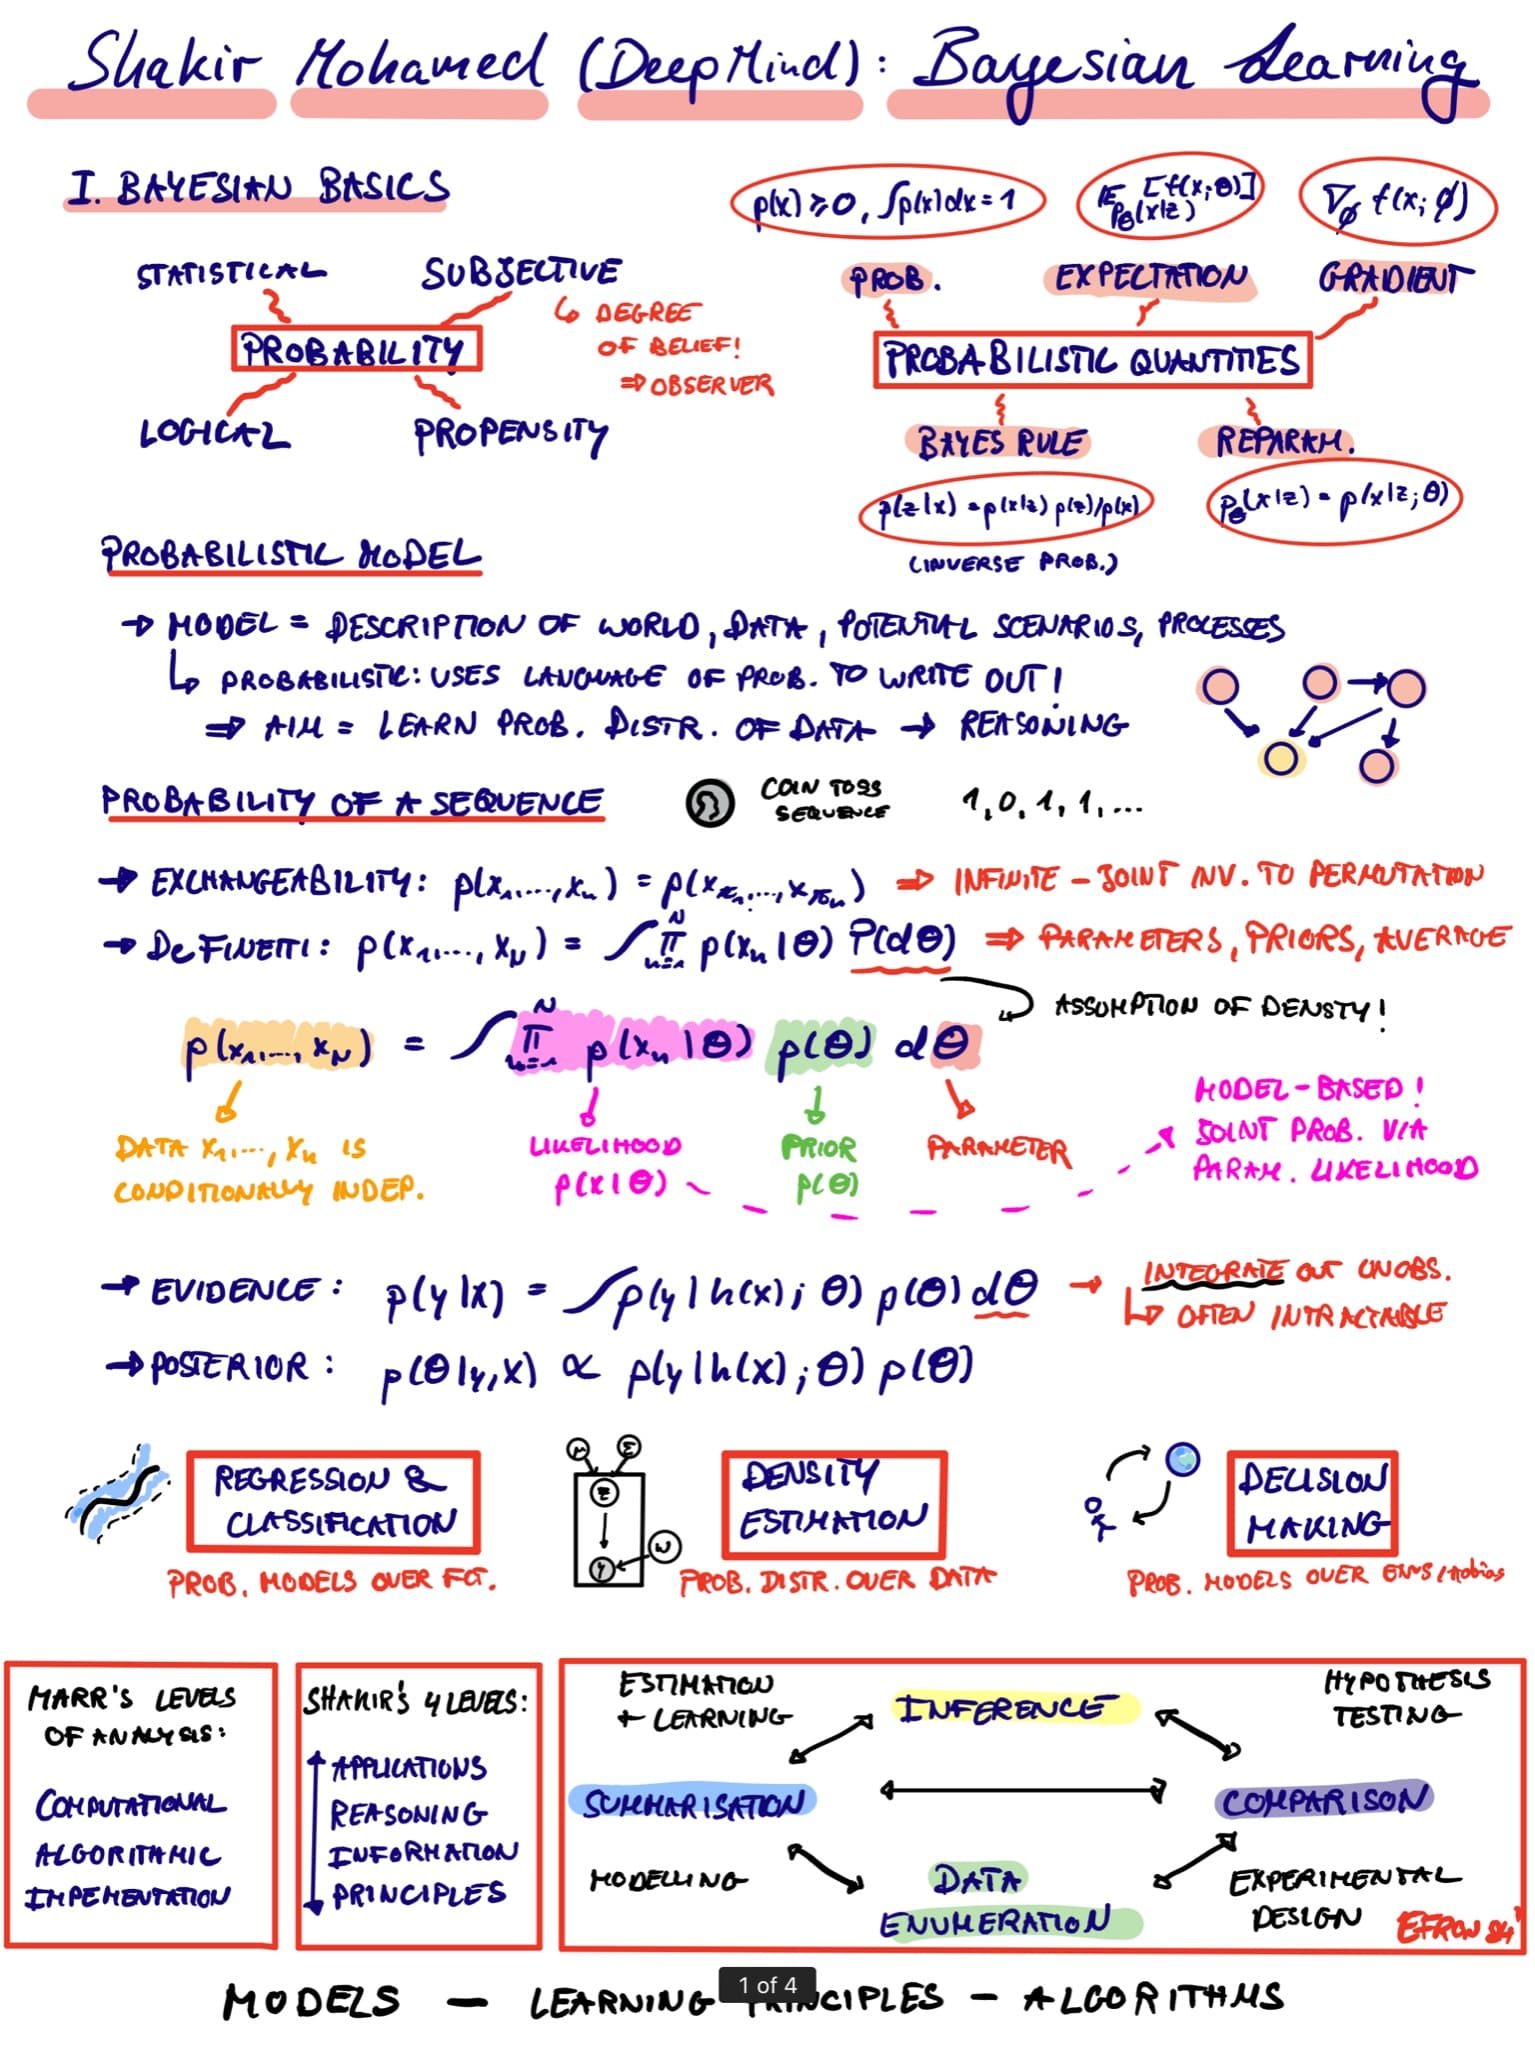 Shakir Mohamed (DeepMind): Bayesian Learning
I. BAYESIAN BASICS
p(x) ⩾ 0, ∫p(x)dx = 1
E_{p_θ(x|z)} [f(x;θ)]
∇_ϕ f(x; ϕ)
STATISTICAL
SUBJECTIVE
↳ DEGREE
OF BELIEF!
⇒ OBSERVER
PROBABILITY
LOGICAL
PROPENSITY
PROB.
EXPECTATION
GRADIENT
PROBABILISTIC QUANTITIES
BAYES RULE
REPARAM.
p(z|x) = p(x|z) p(z)/p(x)
p_θ(x|z) = p(x|z; θ)
(INVERSE PROB.)
PROBABILISTIC MODEL
→ MODEL = DESCRIPTION OF WORLD, DATA, POTENTIAL SCENARIOS, PROCESSES
↳ PROBABILISTIC: USES LANGUAGE OF PROB. TO WRITE OUT!
⇒ AIM = LEARN PROB. DISTR. OF DATA → REASONING
PROBABILITY OF A SEQUENCE
COIN TOSS
SEQUENCE
1, 0, 1, 1, ...
→ EXCHANGEABILITY: p(x₁,...,xₙ) = p(x_{π₁},...,x_{πₙ}) ⇒ INFINITE - JOINT INV. TO PERMUTATION
→ DeFINETTI: p(x₁,...,x_N) = ∫ ∏_{n=1}^N p(xₙ|θ) P(dθ) ⇒ PARAMETERS, PRIORS, AVERAGE
ASSUMPTION OF DENSTY!
p(x₁,..., x_N) = ∫ ∏_{n=1}^N p(xₙ|θ) p(θ) dθ
DATA x₁,..., xₙ IS
CONDITIONALLY INDEP.
LIKELIHOOD
p(x|θ)
PRIOR
p(θ)
PARAMETER
MODEL-BASED!
JOINT PROB. VIA
PARAM. LIKELIHOOD
→ EVIDENCE: p(y|x) = ∫p(y|h(x); θ) p(θ) dθ → INTEGRATE OUT UNOBS.
↳ OFTEN INTRACTABLE
→ POSTERIOR: p(θ|y,x) ∝ p(y|h(x); θ) p(θ)
REGRESSION &
CLASSIFICATION
PROB. MODELS OVER FCT.
μ
Σ
z
y
W
DENSITY
ESTIMATION
PROB. DISTR. OVER DATA
DECISION
MAKING
PROB. MODELS OVER ENVS/
MARR'S LEVELS
OF ANALYSIS:
COMPUTATIONAL
ALGORITHMIC
IMPEMENTATION
SHAKIR'S 4 LEVELS:
APPLICATIONS
REASONING
INFORMATION
PRINCIPLES
ESTIMATION
+ LEARNING
INFERENCE
HYPOTHESIS
TESTING
SUMMARISATION
COMPARISON
MODELLING
DATA
ENUMERATION
EXPERIMENTAL
DESIGN
EFRON 84'
MODELS — LEARNING PRINCIPLES — ALGORITHMS
1 of 4